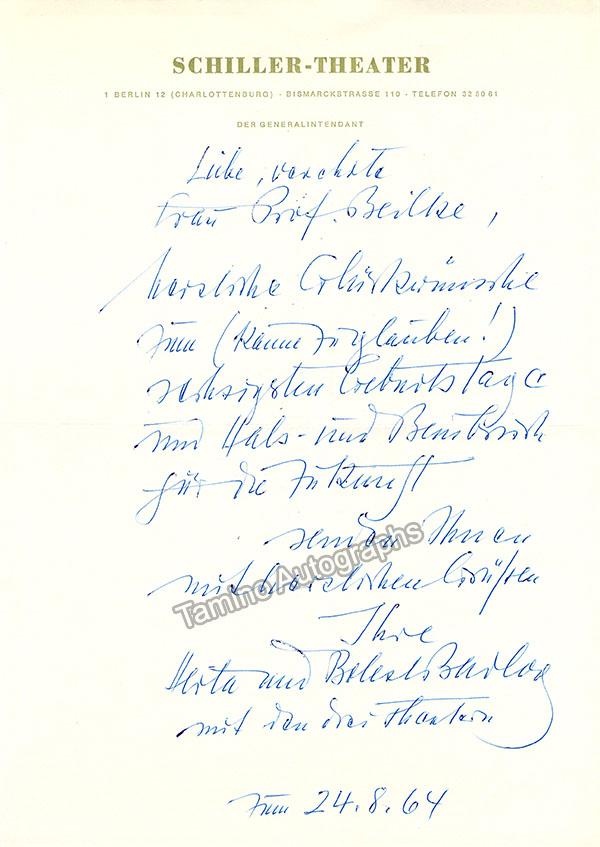 SCHILLER-THEATER
1 BERLIN 12 (CHARLOTTENBURG) · BISMARCKSTRASSE 110 · TELEFON 32 50 61
DER GENERALINTENDANT
Liebe, verehrte
Frau Prof. Beilke,
herzliche Glückwünsche
zum (kaum zu glauben!)
sechzigsten Geburtstage
und Hals- und Beinbruch
für die Zukunft
senden Ihnen
mit herzlichen Grüßen
Ihre
Herta und Boleslaw Barlog
mit den drei Theatern
Zum 24.8.64
Tamino Autographs